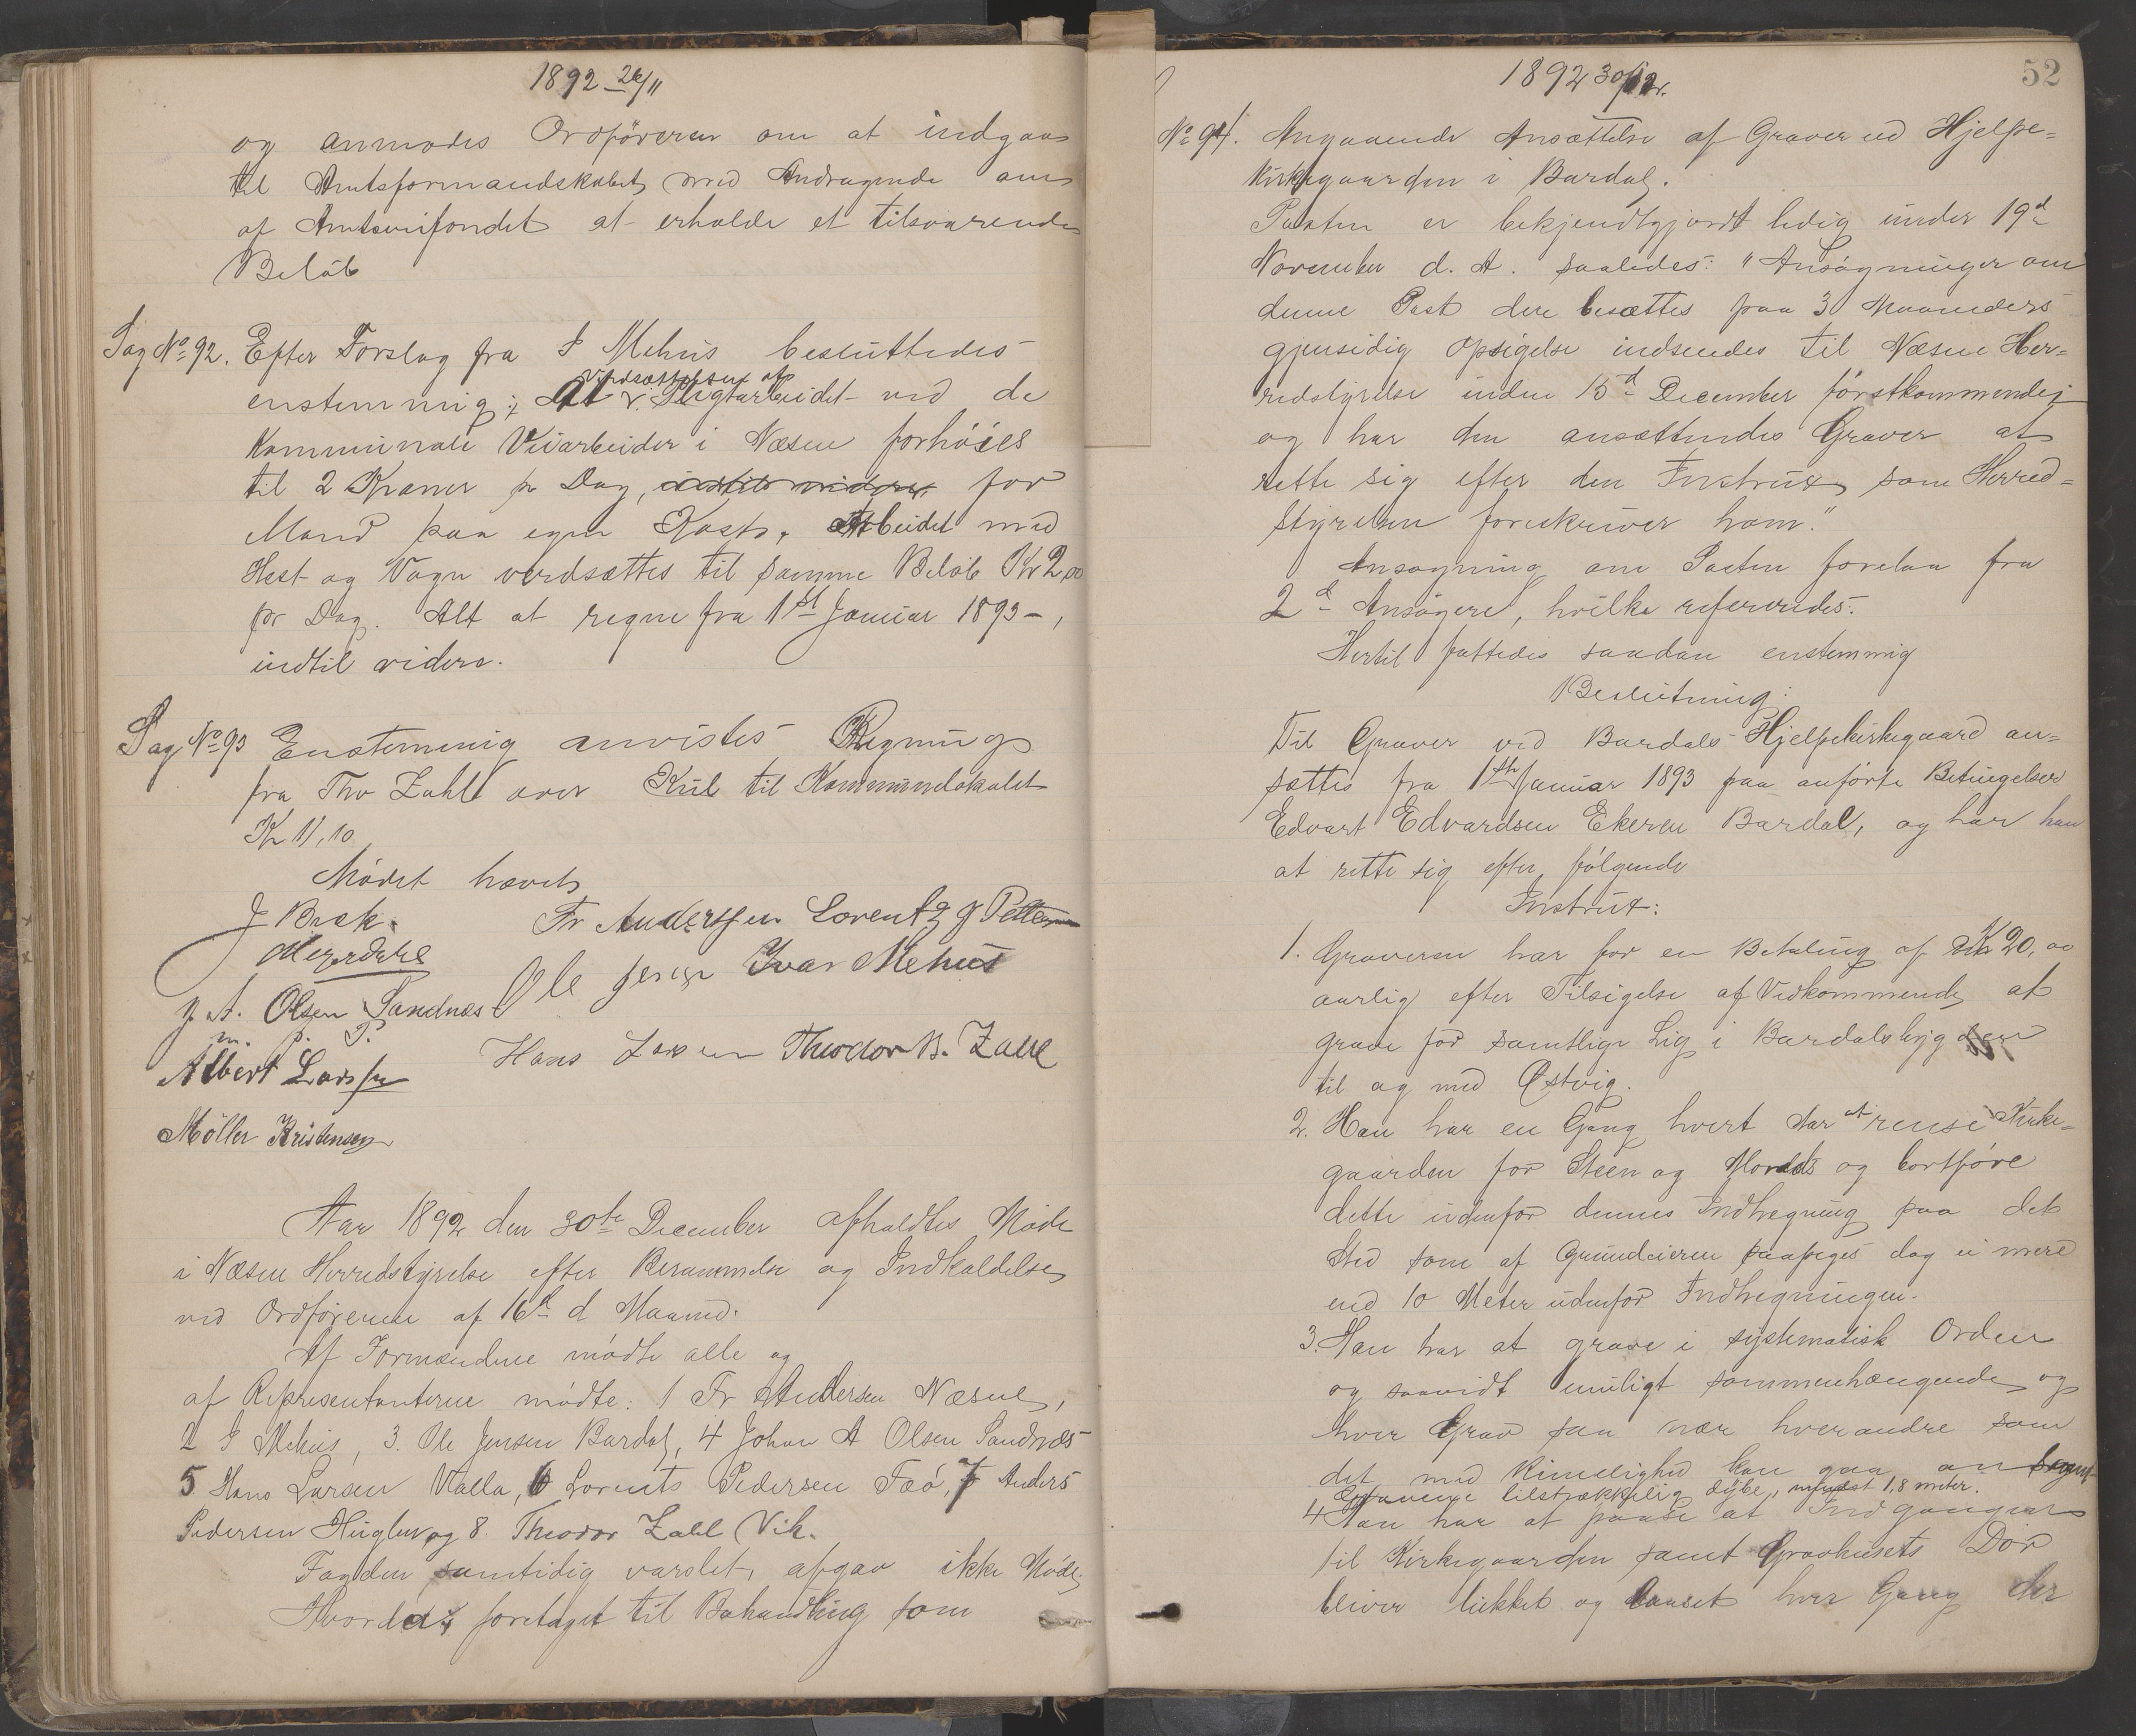 1892 26/11
og anmodes Ordföreren om at indgaa
til Amtsformandskabet med Andragende om
af Amtsveifondet at erholde et tilsvarende
Belöb
Sag No 92. Efter Forslag fra I Mehus besluttedes
enstemmig: At værdsættelsen af Pligtarbeidet ved de
Kommunale Veiarbeider i Næsne forhöies
til 2 Kroner pr Dag, indtil videre, for
Mand paa egen Kost. Arbeidet med
Hest og Vogn verdsættes til samme Belöb Kr 2,00
pr Dag. Alt at regne fra 1ste Januar 1893 –,
indtil videre.
Sag No 93 Enstemmig anvistes Regning
fra Thv Zahl over Kul til Kommunelokalet
Kr 11,10
Mödet hævet
J Brek. Fr Anderssen Lorentz J Petters
Ole Jensen Ivar Mehus
J. A. Olsen Sandnæs
m. p. P.
Hans Larsen Theodor B. Zahl
Albert Larssen
Möller Kristensen
Aar 1892 den 30te December afholdtes Möde
i Næsne Herredstyrelse efter Berammelse og Indkaldelse
ved Ordföreren af 16de d Maaned.
Af Formændene mödte alle og
af Repræsentanterne mödte: 1 Fr Andersen Næsne,
2 I Mehus, 3. Ole Jensen Bardal, 4 Johan A Olsen Sandnæs
5 Hans Larsen Valla, 6 Lorents Pedersen Fæö, 7 Anders
Pedersen Huglen og 8. Theodor Zahl Vik.
Fogden samtidig varslet, afgav ikke Möde.
Hvorda foretaget til Behandling som
1892 30/12.
52
No 94. Angaaende Ansættelse af Graver ved Hjelpe-
kirkegaarden i Bardal.
Posten er bekjendtgjordt ledig under 19de
November d. A. saaledes: "Ansögninger om
denne Post der besættes paa 3 Maaneders
gjensidig Opsigelse indsendes til Næsne Her-
redstyrelse inden 15de December förstkommende;
og har den ansættendes Graver at
rette sig efter den Instrux, som Herred-
styrelsen foreskriver ham."
Ansögning om Posten forelaa fra
2de Ansögere, hvilke refereredes.
Hertil fattedes saadan enstemmig
Beslutning:
Til Graver ved Bardals Hjelpekirkegaard an-
sættes fra 1ste Januar 1893 paa anförte Betingelser
Edvart Edvardsen Ekeren Bardal, og har han
at rette sig efter fölgende
Instrux:
1. Graveren har for en Betaling af Kr 20,00
aarlig efter Tilsigelse af Vedkommende at
grave for samtlige Lig i Bardalsbygden
til og med Østvig.
2. Han har en Gang hvert Aar at rense Kirke-
gaarden for Steen og Mords og bortföre
dette udenfor dennes Indhegning paa det
Sted som af Grundeieren paapeges dog ei mere
end 10 Meter udenfor Indhegningen.
3. Han har at grave i systematisk Orden
og saavidt muligt sammenhængende og
hver Grav saa nær hverandre som
det med Rimelighed kan gaa an
Gravene tilstrækkelig dybe, mindst 1,8 meter.
4 Han har at paase at Indgangen
til Kirkegaarden samt Gravhusets Dör
bliver lukket og laaset hver Gang der